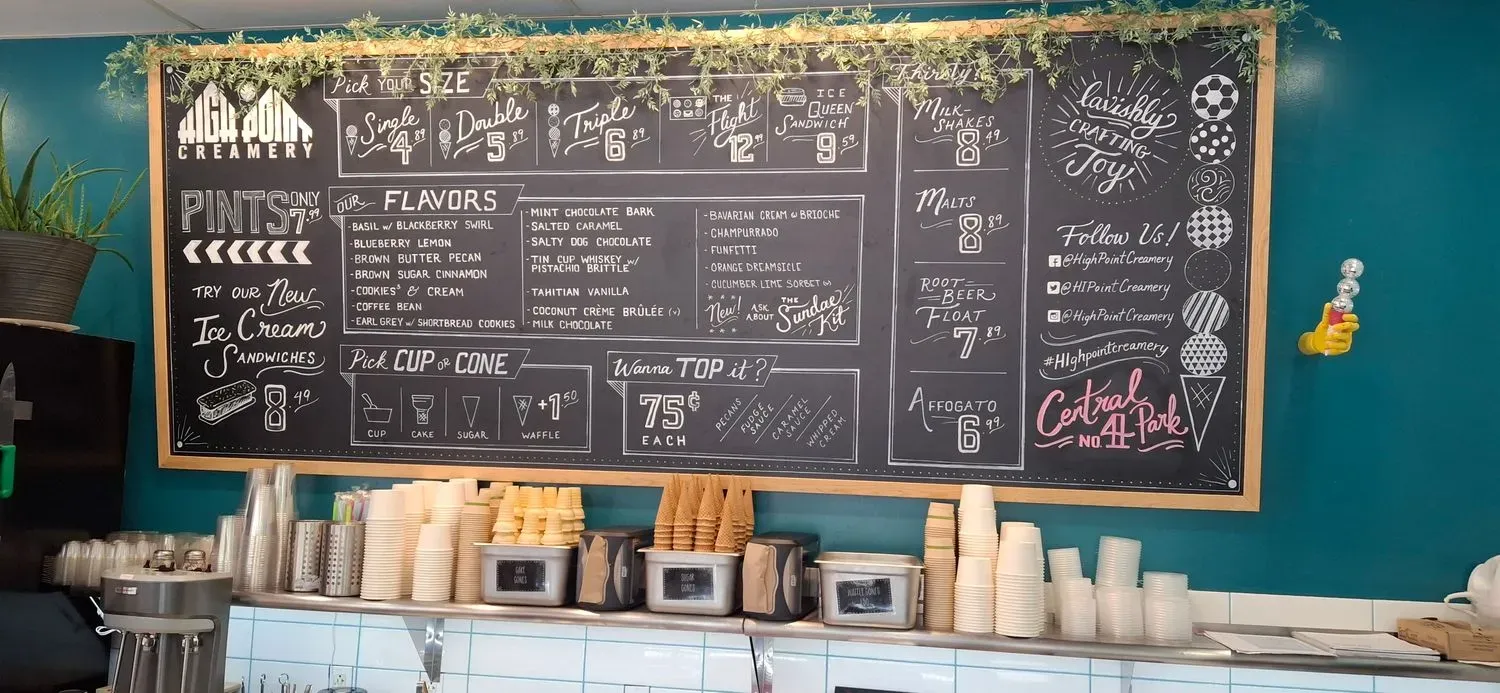 HIGH POINT
CREAMERY
PINTS ONLY
7.99
TRY OUR New
Ice Cream
SANDWICHES
8.49
Pick YOUR SIZE
Single
4.89
Double
5.89
Triple
6.89
THE
Flight
12.99
ICE
QUEEN
SANDWICH
9.59
OUR FLAVORS
- BASIL w/ BLACKBERRY SWIRL
- BLUEBERRY LEMON
- BROWN BUTTER PECAN
- BROWN SUGAR CINNAMON
- COOKIES³ & CREAM
- COFFEE BEAN
- EARL GREY w/ SHORTBREAD COOKIES
- MINT CHOCOLATE BARK
- SALTED CARAMEL
- SALTY DOG CHOCOLATE
- TIN CUP WHISKEY w/
PISTACHIO BRITTLE
- TAHITIAN VANILLA
- COCONUT CRÈME BRÛLÉE (v)
- MILK CHOCOLATE
- BAVARIAN CREAM w BRIOCHE
- CHAMPURRADO
- FUNFETTI
- ORANGE DREAMSICLE
- CUCUMBER LIME SORBET (v)
New! ASK
ABOUT
THE
Sundae
Kit
Pick CUP OR CONE
CUP
CAKE
SUGAR
WAFFLE
+1.50
Wanna TOP it?
75¢
EACH
PECANS
FUDGE
SAUCE
CARAMEL
SAUCE
WHIPPED
CREAM
Thirsty?
MILK-
SHAKES
8.49
MALTS
8.89
ROOT
BEER
FLOAT
7.89
AFFOGATO
6.99
lavishly
CRAFTING
Joy
Follow Us!
@HighPointCreamery
@HIPointCreamery
@HighPointCreamery
#HIghpointcreamery
Central
NO. 41 Park
CAKE
CONES
SUGAR
CONES
WAFFLE CONES